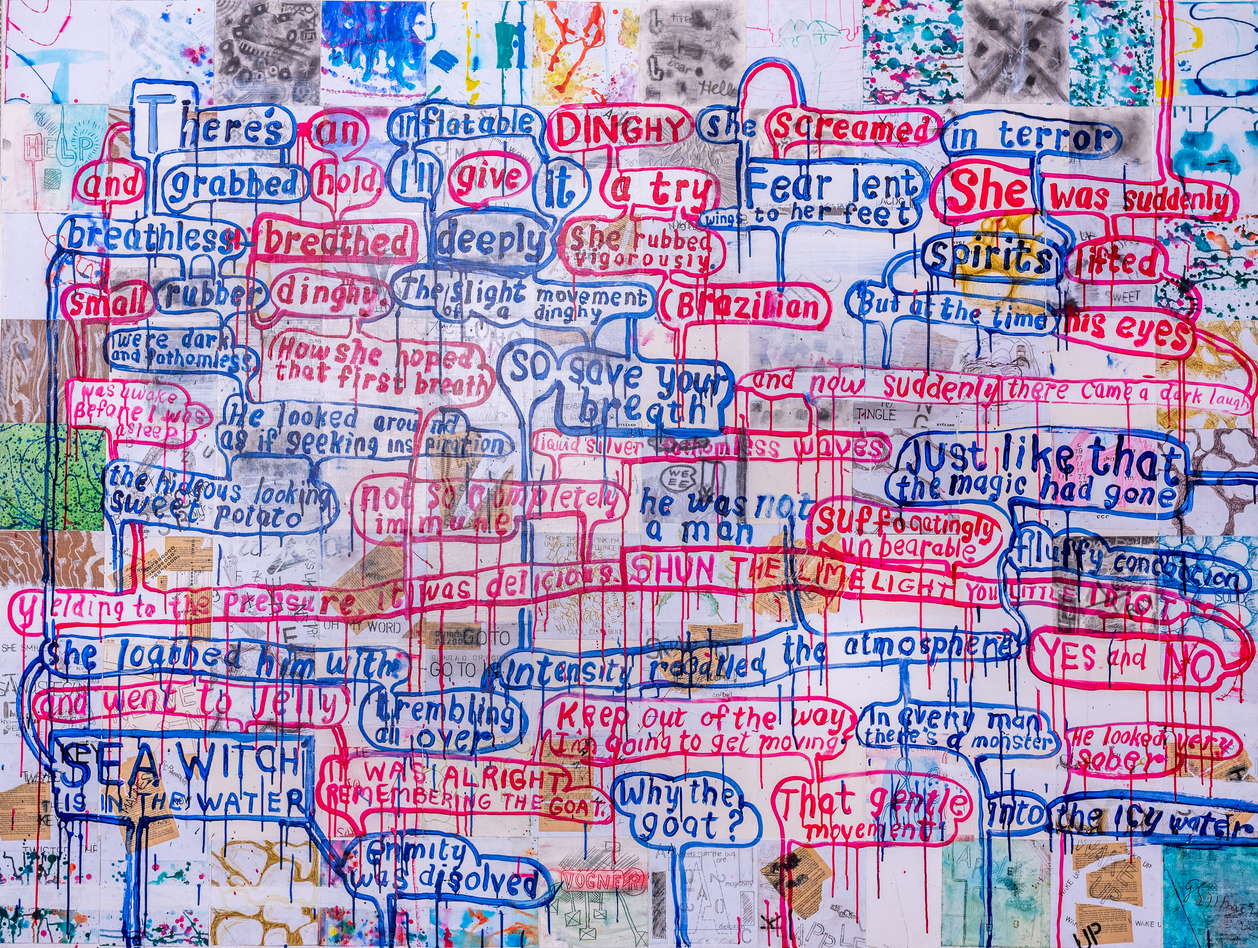 There's an inflatable DINGHY she screamed in terror
and grabbed hold, I'll give it a try Fear lent She was suddenly
wings to her feet
breathless breathed deeply She rubbed spirits lifted
vigorously.
small rubber dinghy. The slight movement (Brazilian But at the time his eyes
of a dinghy
were dark
and fathomless
(How she hoped
that first breath
SO save your
breath
and now suddenly there came a dark laugh
was awake
Before I was
asleep
He looked around
as if seeking inspiration
liquid silver fathomless waves
Just like that
the magic had gone
the hideous looking
sweet potato
not so completely
immune
WE
EE
he was not
a man
suffocatingly
unbearable
fluffy concoction
yielding to the pressure, it was delicious. SHUN THE LIMELIGHT YOU LITTLE IDIOT
She loathed him with Intensity recalled the atmosphere YES and NO
and went to Jelly
trembling
all over
Keep out of the way
I'm going to get moving.
In every man
there's a monster
He looked very
Sober
SEA WITCH
IS IN THE WATER
IT WAS ALRIGHT
REMEMBERING THE GOAT.
Why the
goat?
That gentle
movement
into the icy water
Enmity
was disolved
HELP
Hello
SWEET
TINGLE
OH MY WORD
GO TO
GO TO
VOGNER
APPLE
UP
UP